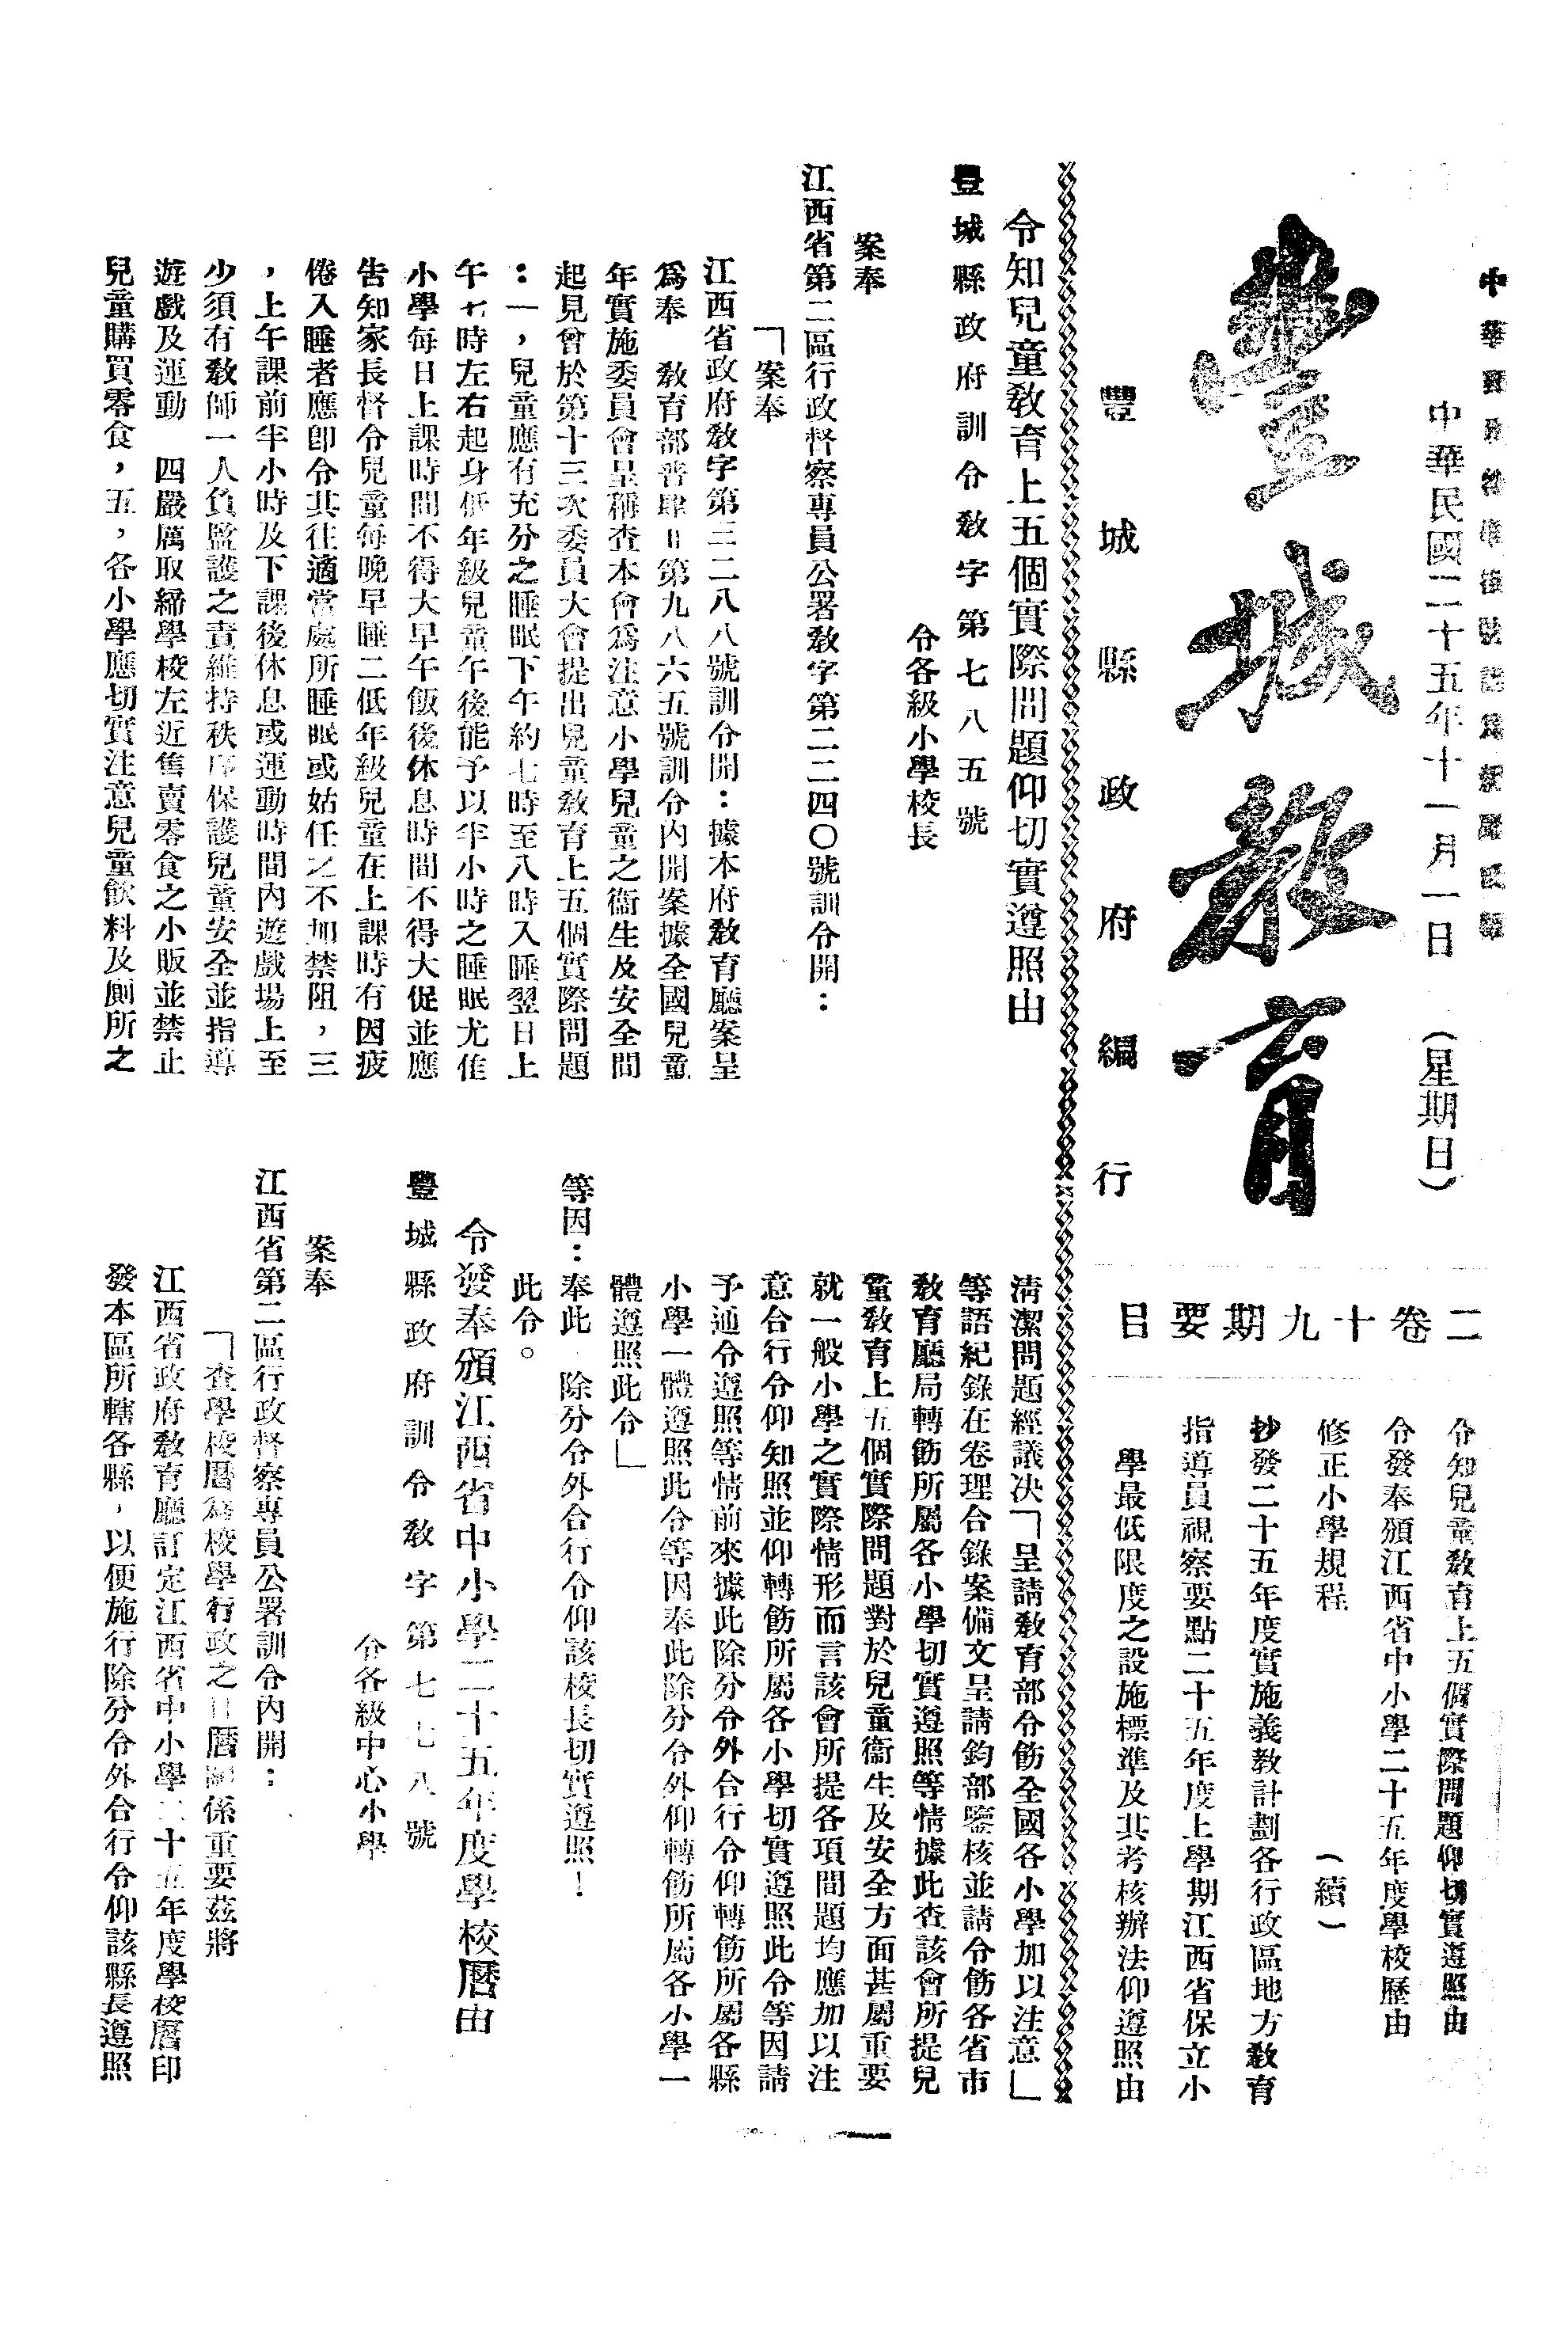 中華郵政特准掛號認爲新聞紙類
中華民國二十五年十一月一日　（星期日）
豐城教育
豐城縣政府編行
二卷十九期要目
令知兒童教育上五個實際問題仰切實遵照由
令發奉頒江西省中小學二十五年度學校歷由
修正小學規程　（續）
抄發二十五年度實施義教計劃各行政區地方教育
指導員視察要點二十五年度上學期江西省保立小
學最低限度之設施標準及其考核辦法仰遵照由
令知兒童教育上五個實際問題仰切實遵照由
豐城縣政府訓令教字第七八五號
令各級小學校長
案奉
江西省第二區行政督察專員公署教字第二二四〇號訓令開：
「案奉
江西省政府教字第三二八八號訓令開：據本府教育廳案呈
爲奉　教育部普肆11第九八六五號訓令內開案據全國兒童
年實施委員會呈稱查本會爲注意小學兒童之衞生及安全問
起見曾於第十三次委員大會提出兒童教育上五個實際問題
：一，兒童應有充分之睡眠下午約七時至八時入睡翌日上
午七時左右起身低年級兒童午後能予以半小時之睡眠尤佳
小學每日上課時間不得大早午飯後休息時間不得大促並應
告知家長督令兒童每晚早睡二低年級兒童在上課時有因疲
倦入睡者應卽令其往適當處所睡眠或姑任之不加禁阻，三
，上午課前半小時及下課後休息或運動時間內遊戲場上至
少須有教師一人負監護之責維持秩序保護兒童安全並指導
遊戲及運動　四嚴厲取締學校左近售賣零食之小販並禁止
兒童購買零食，五，各小學應切實注意兒童飲料及廁所之
淸潔問題經議決「呈請教育部令飭全國各小學加以注意」
等語紀錄在卷理合錄案備文呈請鈞部鑒核並請令飭各省市
教育廳局轉飭所屬各小學切實遵照等情據此查該會所提兒
童教育上五個實際問題對於兒童衞生及安全方面甚屬重要
就一般小學之實際情形而言該會所提各項問題均應加以注
意合行令仰知照並仰轉飭所屬各小學切實遵照此令等因請
予通令遵照等情前來據此除分令外合行令仰轉飭所屬各縣
小學一體遵照此令等因奉此除分令外仰轉飭所屬各小學一
體遵照此令」
等因：奉此　除分令外合行令仰該校長切實遵照！
此令。
令發奉頒江西省中小學二十五年度學校曆由
豐城縣政府訓令教字第七七八號
令各級中心小學
案奉
江西省第二區行政督察專員公署訓令內開：
「查學校曆爲校學行政之日曆關係重要茲將
江西省政府教育廳訂定江西省中小學二十五年度學校曆印
發本區所轄各縣，以便施行除分令外合行令仰該縣長遵照
一